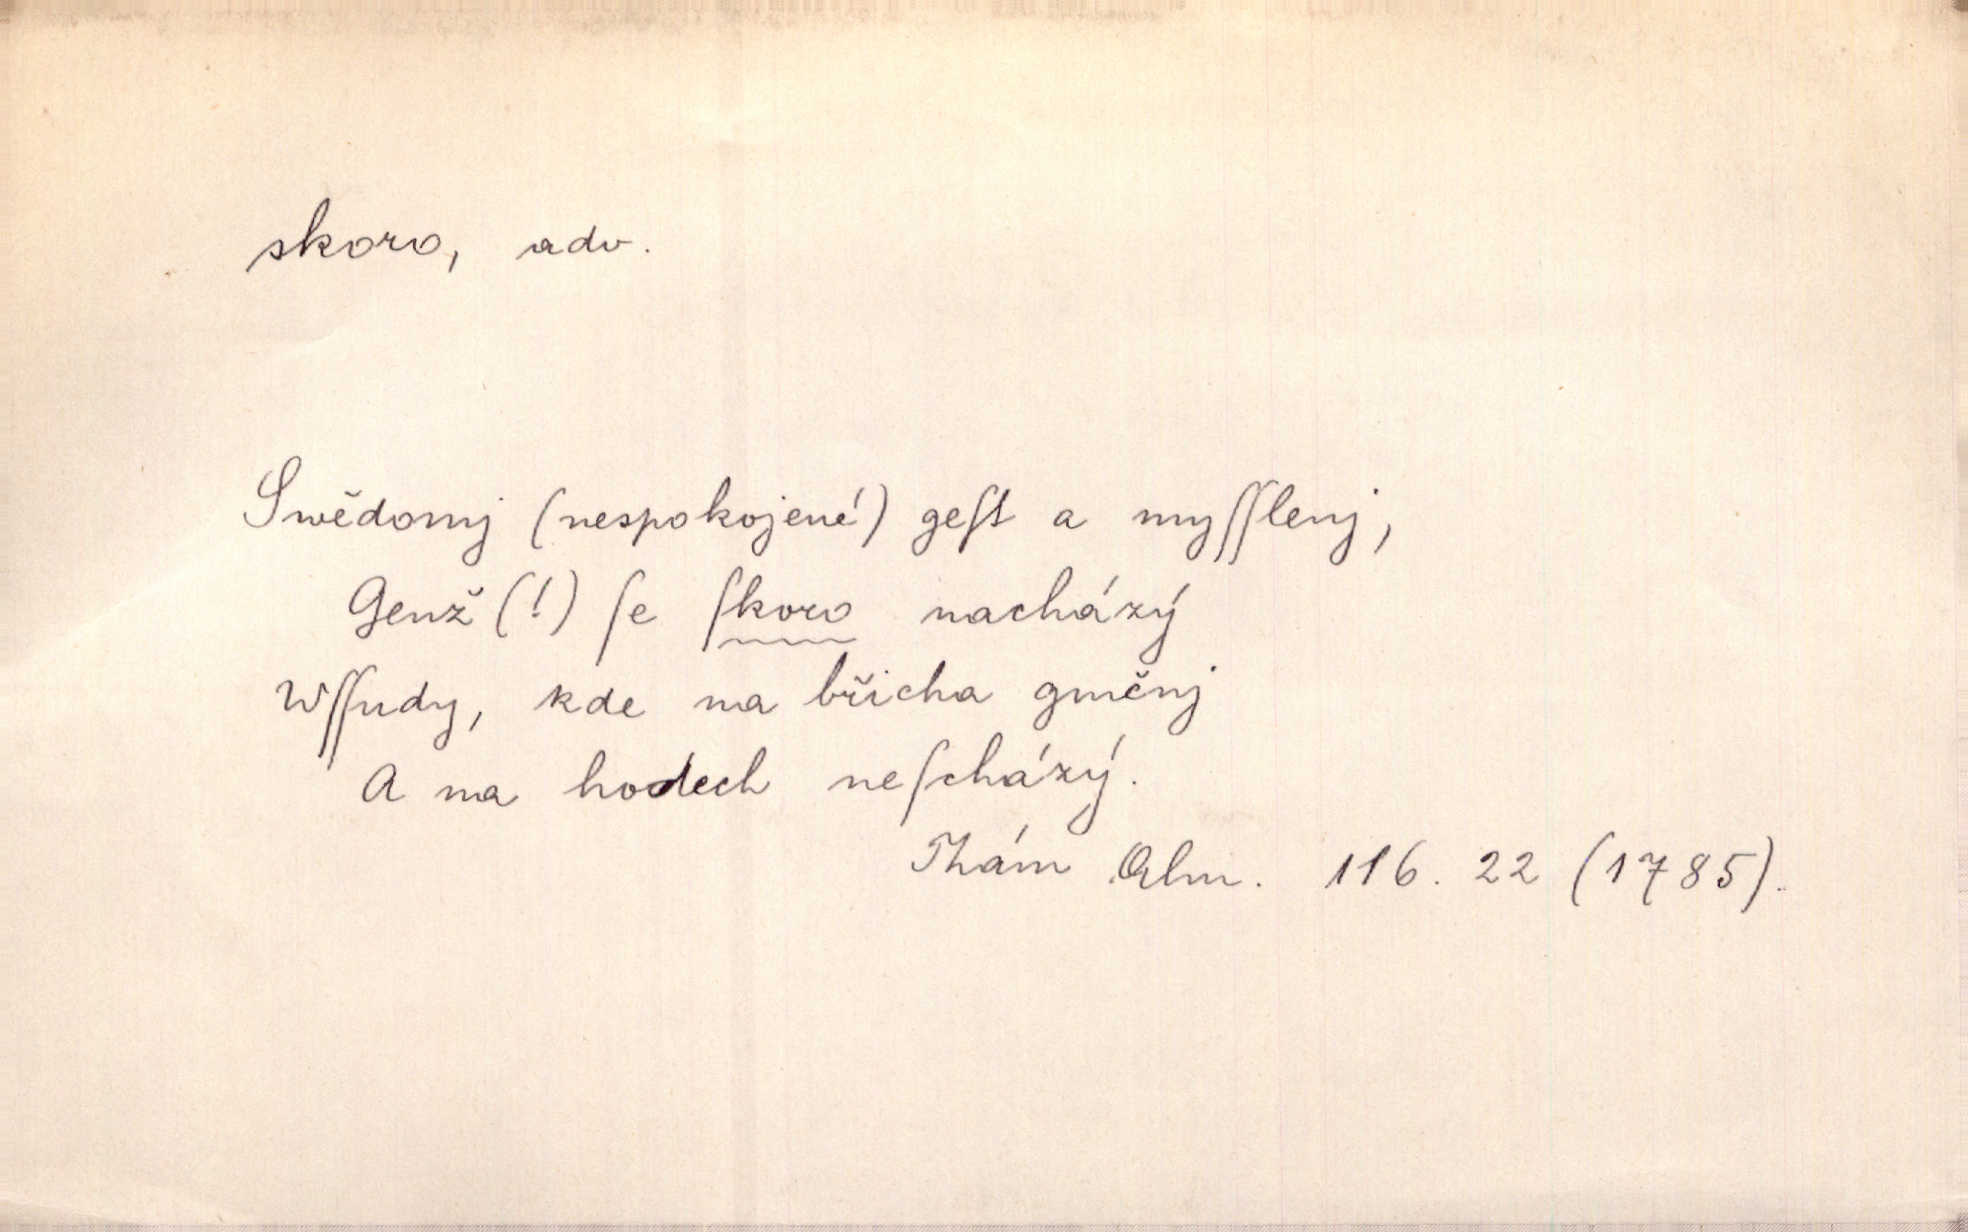 skoro, adv.
Swědomj (nespokojené) geſt a myſſlenj,
Genž (!) ſe ſkoro nacházý
Wſſudy, kde na břicha gměnj
A na hodech neſcházý.
Thám Alm. 116. 22 (1785).